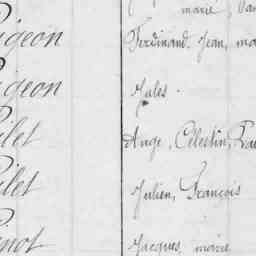 marie
igeon Ferdinand, Jean, ma
igeon Jules.
ilet Ange, Célestin,
ilet Julien, François
inot Jacques, marie